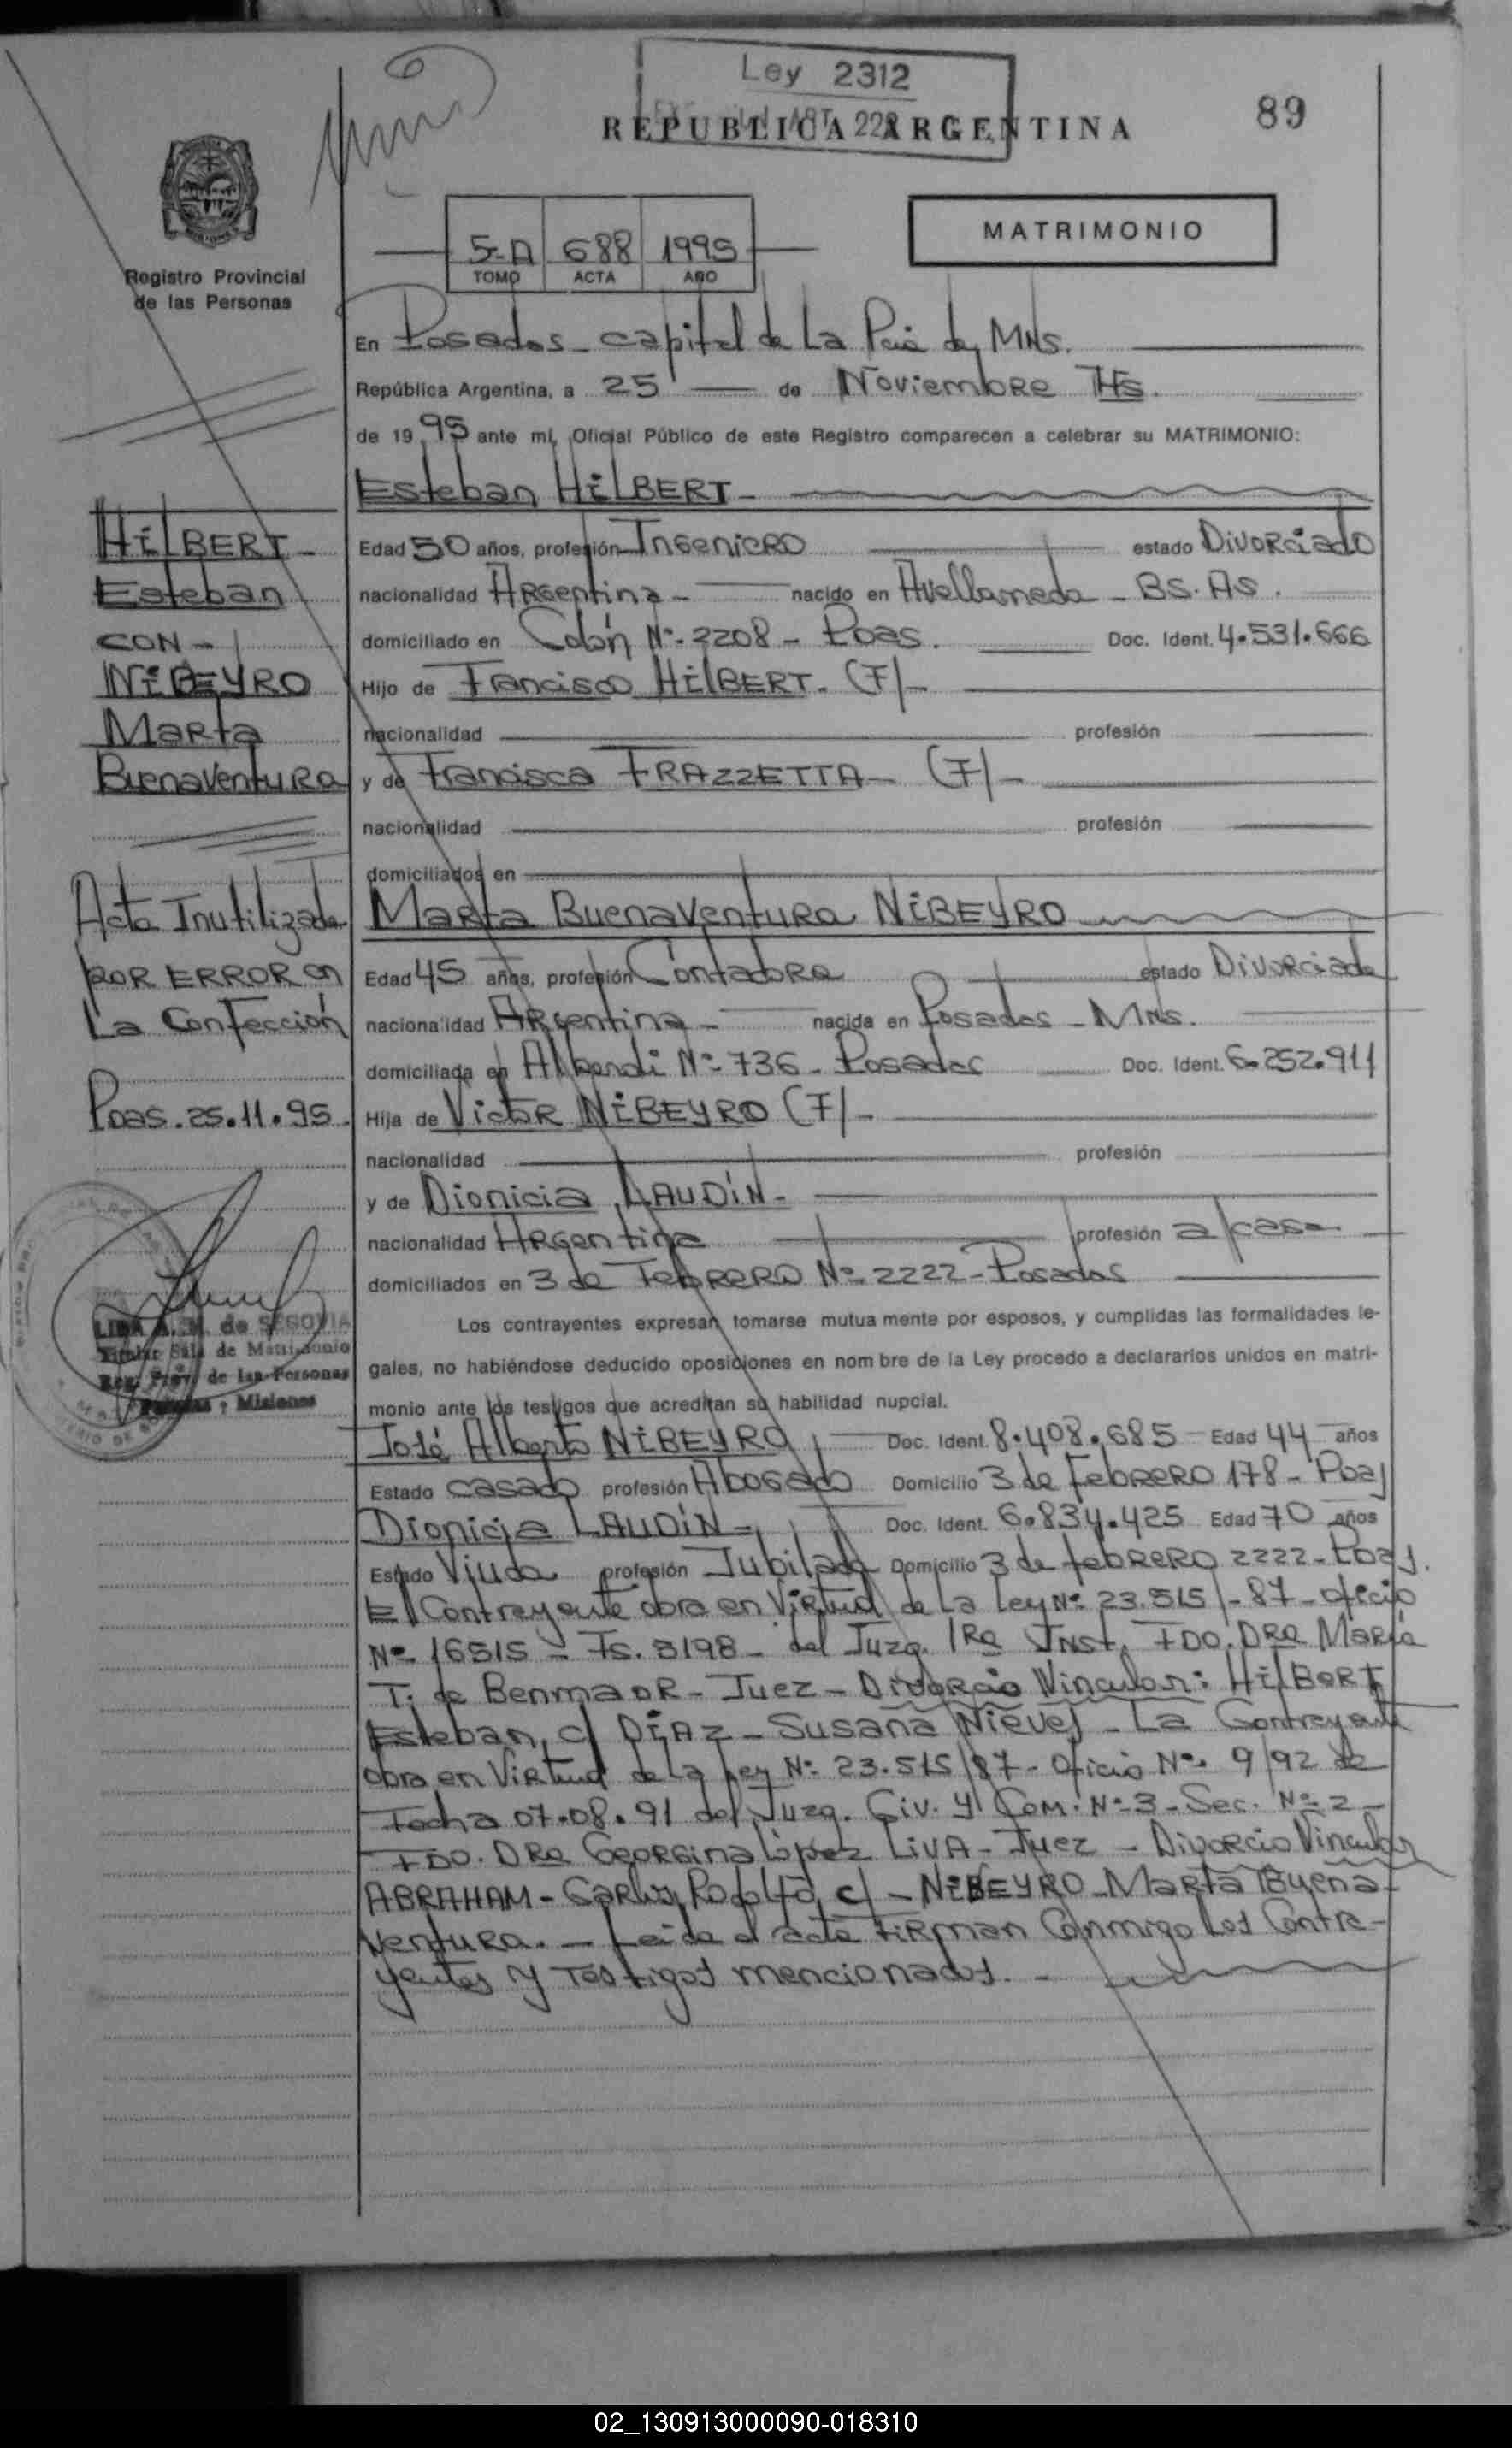 Ley 2312
ART 22
REPUBLICA ARGENTINA
89
5-A 688 1995
TOMO ACTA AÑO
MATRIMONIO
Registro Provincial
de las Personas
En Posadas - capital de La Pcia de Mnes.
República Argentina, a 25 de Noviembre
de 1995 ante mí, Oficial Público de este Registro comparecen a celebrar su MATRIMONIO:
Esteban HILBERT -
HILBERT -
Esteban
CON -
NIBEYRO
Marta
Buenaventura
Edad 50 años, profesión Ingeniero estado Divorciado
nacionalidad Argentina - nacido en Avellaneda - BS. AS.
domiciliado en Colón Nº 2208 - Poas. Doc. Ident. 4.531.666
Hijo de Francisco HILBERT. (F) -
nacionalidad profesión
y de Francisca FRAZZETTA - (F) -
nacionalidad profesión
domiciliados en
Marta Buenaventura NIBEYRO
Acta Inutilizada
por ERROR en
La Confección
Poas. 25.11.95.
Edad 45 años, profesión Contadora estado Divorciada
nacionalidad Argentina - nacida en Posadas - Mnes.
domiciliada en Alberdi Nº 736 - Posadas Doc. Ident. 6.252.911
Hija de Victor NIBEYRO (F) -
nacionalidad profesión
y de Dionicia LAUDIN -
nacionalidad Argentina profesión a/casa
domiciliados en 3 de Febrero Nº 2222 - Posadas
LIDA A. M. de SEGOVIA
Titular Sala de Matrimonio
Reg. Prov. de las Personas
Posadas - Misiones
Los contrayentes expresan tomarse mutua mente por esposos, y cumplidas las formalidades le-
gales, no habiéndose deducido oposiciones en nom bre de la Ley procedo a declararlos unidos en matri-
monio ante los testigos que acreditan su habilidad nupcial.
José Alberto NIBEYRO Doc. Ident. 8.408.685 Edad 44 años
Estado casado profesión Abogado Domicilio 3 de Febrero 178 - Poas
Dionicia LAUDIN - Doc. Ident. 6.834.425 Edad 70 años
Estado Viuda profesión Jubilada Domicilio 3 de febrero 2222 - Poas.
El Contrayente obra en Virtud de La Ley Nº 23.515/-87 - oficio
Nº 16515 - Fs. 3198 - del Juzg. 1Ra Inst. FDO. DRa María
T. de Benmaor - Juez - Divorcio Vincular: HILBERT
Esteban c/ DIAZ - Susana Nieves - La Contrayente
obra en Virtud de La Ley Nº 23.515/87 - Oficio Nº 9/92 de
Fecha 07.08.91 del Juzg. Civ. y Com. Nº 3 - Sec. Nº 2 -
FDO. DRa Georgina López LIVA - Juez - Divorcio Vincular
ABRAHAM - Carlos Rodolfo c/ - NIBEYRO - Marta Buena-
ventura. - Leida el acta firman Conmigo los Contra-
yentes y Testigos mencionados. -
02_130913000090-018310